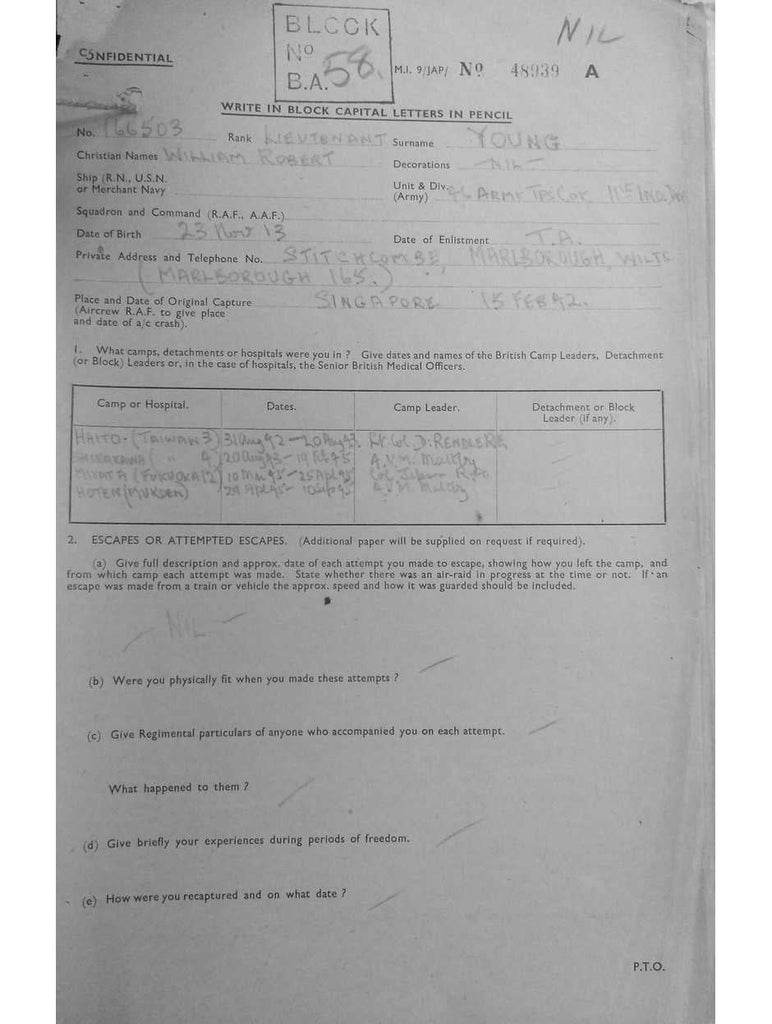 NIL
BLOCK
Nº
B.A. 58.
CONFIDENTIAL
M.I. 9/JAP/ Nº 48939 A
WRITE IN BLOCK CAPITAL LETTERS IN PENCIL
No. 166503 Rank LIEUTENANT Surname YOUNG
Christian Names WILLIAM ROBERT Decorations NIL
Ship (R.N., U.S.N. or Merchant Navy
Unit & Div. (Army) ARMY
Squadron and Command (R.A.F., A.A.F.)
Date of Birth 23 Nov 13 Date of Enlistment T.A.
Private Address and Telephone No. STITCHCOMBE, MARLBOROUGH, WILTS
(MARLBOROUGH 165.)
Place and Date of Original Capture SINGAPORE 15 FEB 42.
(Aircrew R.A.F. to give place
and date of a/c crash).
1. What camps, detachments or hospitals were you in ? Give dates and names of the British Camp Leaders, Detachment
(or Block) Leaders or, in the case of hospitals, the Senior British Medical Officers.
Camp or Hospital. Dates. Camp Leader. Detachment or Block
Leader (if any).
HAITO - (TAIWAN 3) 31 Aug 42 - 20 Aug 43. Lt. Col D.
SHIRAKAWA ( " 20 Aug 43 - A.V.M. Maltby
MIYATA (FUKUOKA 12) 10 Mar 45 - 25 Apl 45 Col
HOTEN (MUKDEN) 29 Apl 45 - A.V.M. Maltby
2. ESCAPES OR ATTEMPTED ESCAPES. (Additional paper will be supplied on request if required).
(a) Give full description and approx. date of each attempt you made to escape, showing how you left the camp, and
from which camp each attempt was made. State whether there was an air-raid in progress at the time or not. If an
escape was made from a train or vehicle the approx. speed and how it was guarded should be included.
- NIL -
(b) Were you physically fit when you made these attempts ?
(c) Give Regimental particulars of anyone who accompanied you on each attempt.
What happened to them ?
(d) Give briefly your experiences during periods of freedom.
(e) How were you recaptured and on what date ?
P.T.O.